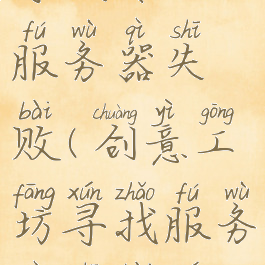 fú wù qì shī
服务器失
bài chuàng yì gōng
败(创意工
fāng xún zhǎo fú wù
坊寻找服务